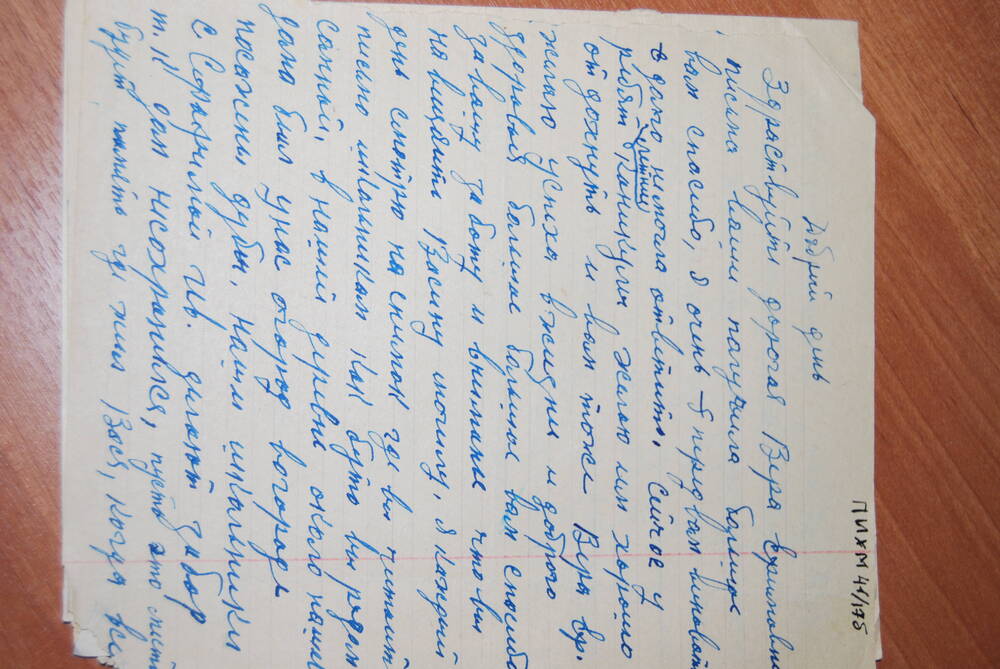 ПИХМ 41/175
Добрий день
Здраствуйте дорогая Вера
письма ваши получила большое
вам спасибо, я очень перед вам виновата
долго немогла ответить. сейчас у
летние
ребят каникулы желаю им хорошо
отдохнуть и вам тоже Вера Ер.
желаю успеха вжизни и доброго
здоровья большое большое вам спасибо
за вашу заботу и вниманье что вы
навещаите Васину могилу. я каждий
день смотрю на снимок где вы читаите
письмо школьникам как буто вы рядом
самной, в нашей деревне около нашего
дома был унас огород вогороде
посажены дубы. наши школьники
с Серафимой Ив. делают забор
т.к дом несохранился, пусть это место
будет память где жил Вася, когда все